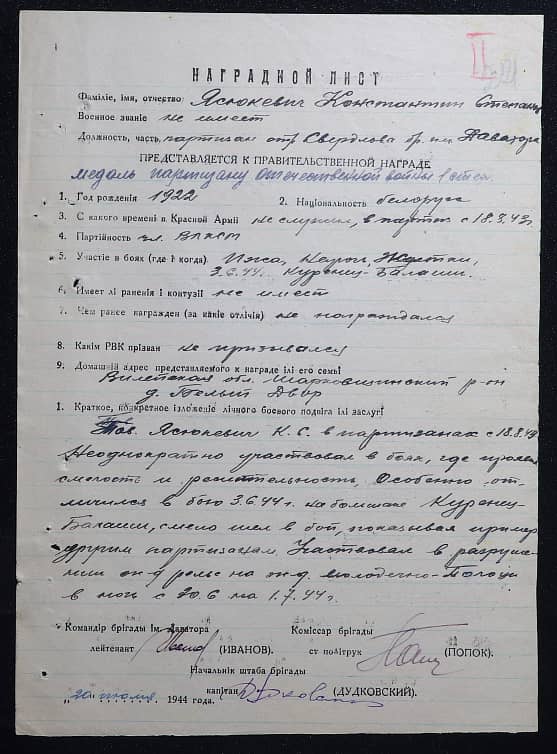 II
НАГРАДНОЙ ЛИСТ
Фамиліе, імя, отчество Ясюкевич Константин Степан
Военное званіе не имеет
Должность, часть, партизан отр. Свердлова бр. им. Даватора
ПРЕДСТАВЛЯЕТСЯ К ПРАВИТЕЛЬСТВЕННОЙ НАГРАДЕ
медаль партизану отечественной войны
1. Год рождения 1922 2. Національность белорус
3. С какого времени в Красной Армії не служил, в партиз с 18.8.43г
4. Партійность чл. ВЛКСМ
5. Участіе в боях (где і когда). Ижа,
3.6.44г. Куренец-Балаши.
6. Имеет лі раненія і контузії не имеет
7. Чем ранее награжден (за какіе отлічія) не награждался
8. Какім РВК прізван не призывался
9. Домашній адрес представляемого к награде ілі его семьі
Вилейская обл. р-он
д. Белый Двор
1. Краткое, конкретное ізложеніе лічного боевого подвіга ілі заслугі
Тов. Ясюкевич К.С. в партизанах с 18.8.43
Неоднократно участвовал в боях, где проявил
смелость и решительность. Особенно от-
личился в бою 3.6.44г. на большаке Куренец-
Балаши, смело шел в бой, показывая пример
другим партизанам. Участвовал в разруше-
нии ж.д. рельс на ж.д. Молодечно-Полоцк
в ночь с 30.6 на 1.7.44г.
Командір брігады Ім. Даватора Коміссар брігады
лейтенант (ИВАНОВ). ст політрук (ПОПОК).
Начальнік штаба брігады
капітан (ДУДКОВСКИЙ).
„20" июля 1944 года.